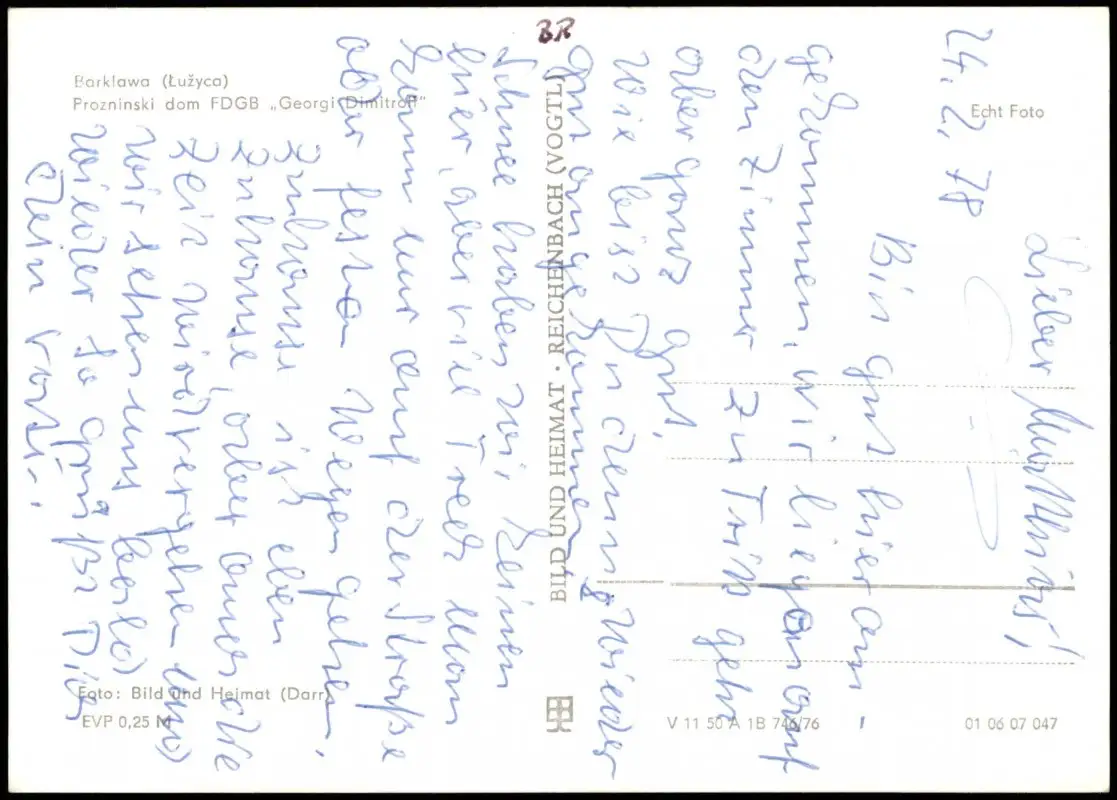 Barklawa (Łužyca)
Prozninski dom FDGB „Georgi Dimitroff"
BR
Echt Foto
BILD UND HEIMAT · REICHENBACH (VOGTL)
Foto: Bild und Heimat (Darr)
EVP 0,25 M
V 11 50 A 1B 746/76
01 06 07 047
24. 2. 78
Lieber
Bin gut hier an-
gekommen, wir liegen auf
dem Zimmer zu Tritt geht
aber ganz gut,
Wie bist Du denn wieder
gut angekommen,
Schnee haben wir keinen
hier, aber viel man
kann nur auf der Straße
oder festen Wegen gehen,
zuhause ist eben
zuhause, aber auch die
Zeit wird vergehen und
wir sehen uns bald
wieder so grüßt Dich
Dein